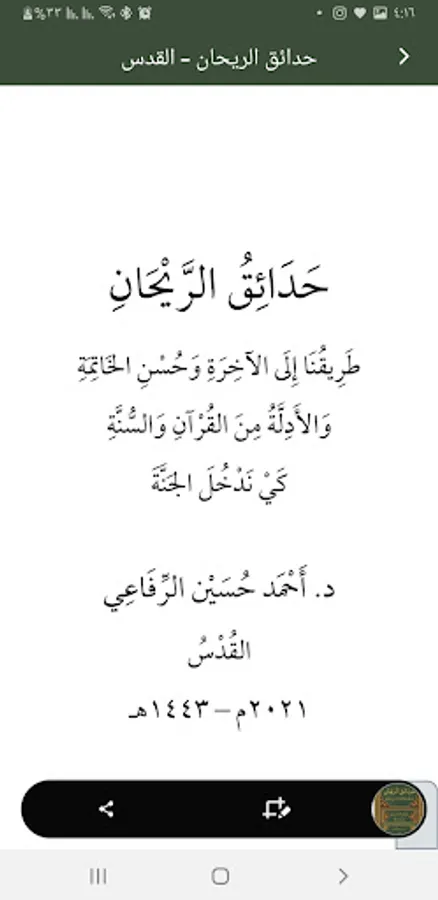 ٤:١٦
٪٣٣
حدائق الريحان - القدس
حَدَائِقُ الرَّيْحَانِ
طَرِيقُنَا إِلَى الآخِرَةِ وَحُسْنِ الخَاتِمَةِ
وَالأَدِلَّةُ مِنَ القُرْآنِ وَالسُّنَّةِ
كَيْ نَدْخُلَ الجَنَّةَ
د. أَحْمَد حُسَيْن الرِّفَاعِي
القُدْسُ
٢٠٢١م – ١٤٤٣هـ